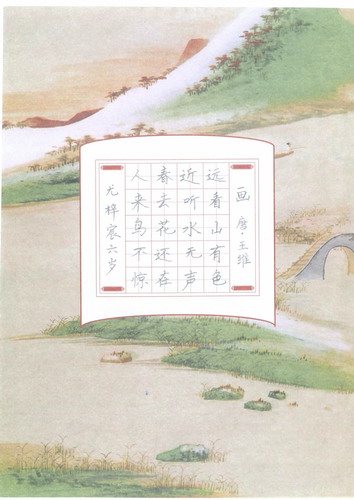 画 唐·王维
远看山有色
近听水无声
春去花还在
人来鸟不惊
尤梓宸六岁